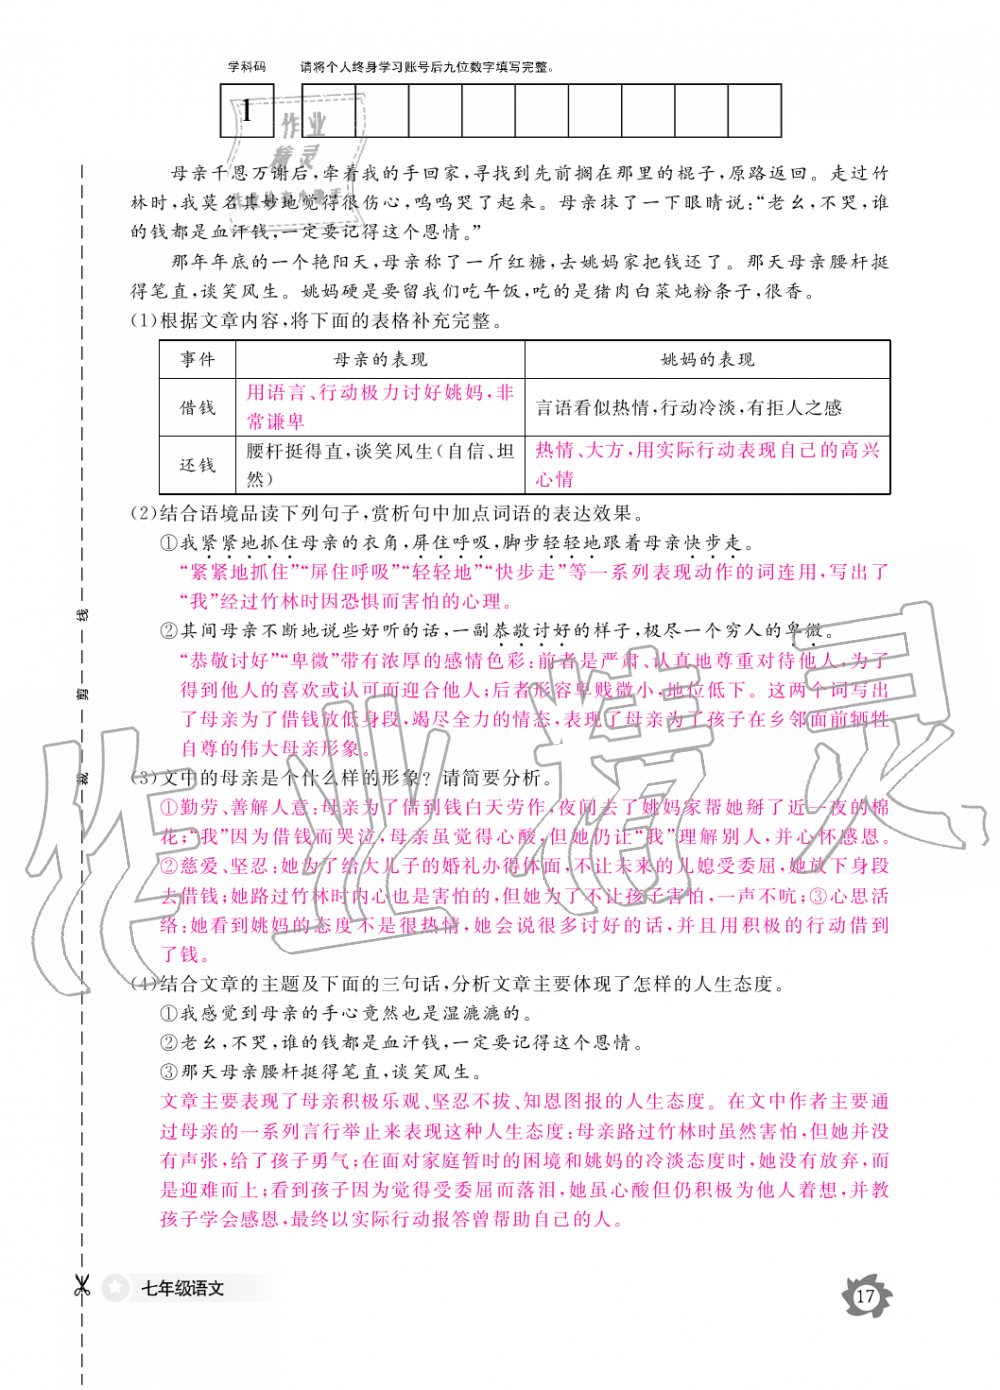 学科码 请将个人终身学习账号后九位数字填写完整。
1
母亲千恩万谢后,牵着我的手回家,寻找到先前搁在那里的棍子,原路返回。走过竹
林时,我莫名其妙地觉得很伤心,呜呜哭了起来。母亲抹了一下眼睛说:“老幺,不哭,谁
的钱都是血汗钱,一定要记得这个恩情。”
那年年底的一个艳阳天,母亲称了一斤红糖,去姚妈家把钱还了。那天母亲腰杆挺
得笔直,谈笑风生。姚妈硬是要留我们吃午饭,吃的是猪肉白菜炖粉条子,很香。
(1)根据文章内容,将下面的表格补充完整。
事件 母亲的表现 姚妈的表现
借钱 用语言、行动极力讨好姚妈,非
常谦卑
言语看似热情,行动冷淡,有拒人之感
还钱 腰杆挺得直,谈笑风生(自信、坦
然)
热情、大方,用实际行动表现自己的高兴
心情
(2)结合语境品读下列句子,赏析句中加点词语的表达效果。
①我紧紧地抓住母亲的衣角,屏住呼吸,脚步轻轻地跟着母亲快步走。
“紧紧地抓住”“屏住呼吸”“轻轻地”“快步走”等一系列表现动作的词连用,写出了
“我”经过竹林时因恐惧而害怕的心理。
②其间母亲不断地说些好听的话,一副恭敬讨好的样子,极尽一个穷人的卑微。
“恭敬讨好”“卑微”带有浓厚的感情色彩:前者是严肃、认真地尊重对待他人,为了
得到他人的喜欢或认可而迎合他人;后者形容卑贱微小,地位低下。这两个词写出
了母亲为了借钱放低身段,竭尽全力的情态,表现了母亲为了孩子在乡邻面前牺牲
自尊的伟大母亲形象。
(3)文中的母亲是个什么样的形象?请简要分析。
①勤劳、善解人意:母亲为了借到钱白天劳作,夜间去了姚妈家帮她掰了近一夜的棉
花;“我”因为借钱而哭泣,母亲虽觉得心酸,但她仍让“我”理解别人,并心怀感恩。
②慈爱、坚忍:她为了给大儿子的婚礼办得体面,不让未来的儿媳受委屈,她放下身段
去借钱;她路过竹林时内心也是害怕的,但她为了不让孩子害怕,一声不吭;③心思活
络:她看到姚妈的态度不是很热情,她会说很多讨好的话,并且用积极的行动借到
了钱。
(4)结合文章的主题及下面的三句话,分析文章主要体现了怎样的人生态度。
①我感觉到母亲的手心竟然也是湿漉漉的。
②老幺,不哭,谁的钱都是血汗钱,一定要记得这个恩情。
③那天母亲腰杆挺得笔直,谈笑风生。
文章主要表现了母亲积极乐观、坚忍不拔、知恩图报的人生态度。在文中作者主要通
过母亲的一系列言行举止来表现这种人生态度:母亲路过竹林时虽然害怕,但她并没
有声张,给了孩子勇气;在面对家庭暂时的困境和姚妈的冷淡态度时,她没有放弃,而
是迎难而上;看到孩子因为觉得受委屈而落泪,她虽心酸但仍积极为他人着想,并教
孩子学会感恩,最终以实际行动报答曾帮助自己的人。
线
剪
裁
七年级语文
17
作业精灵
作业
精灵